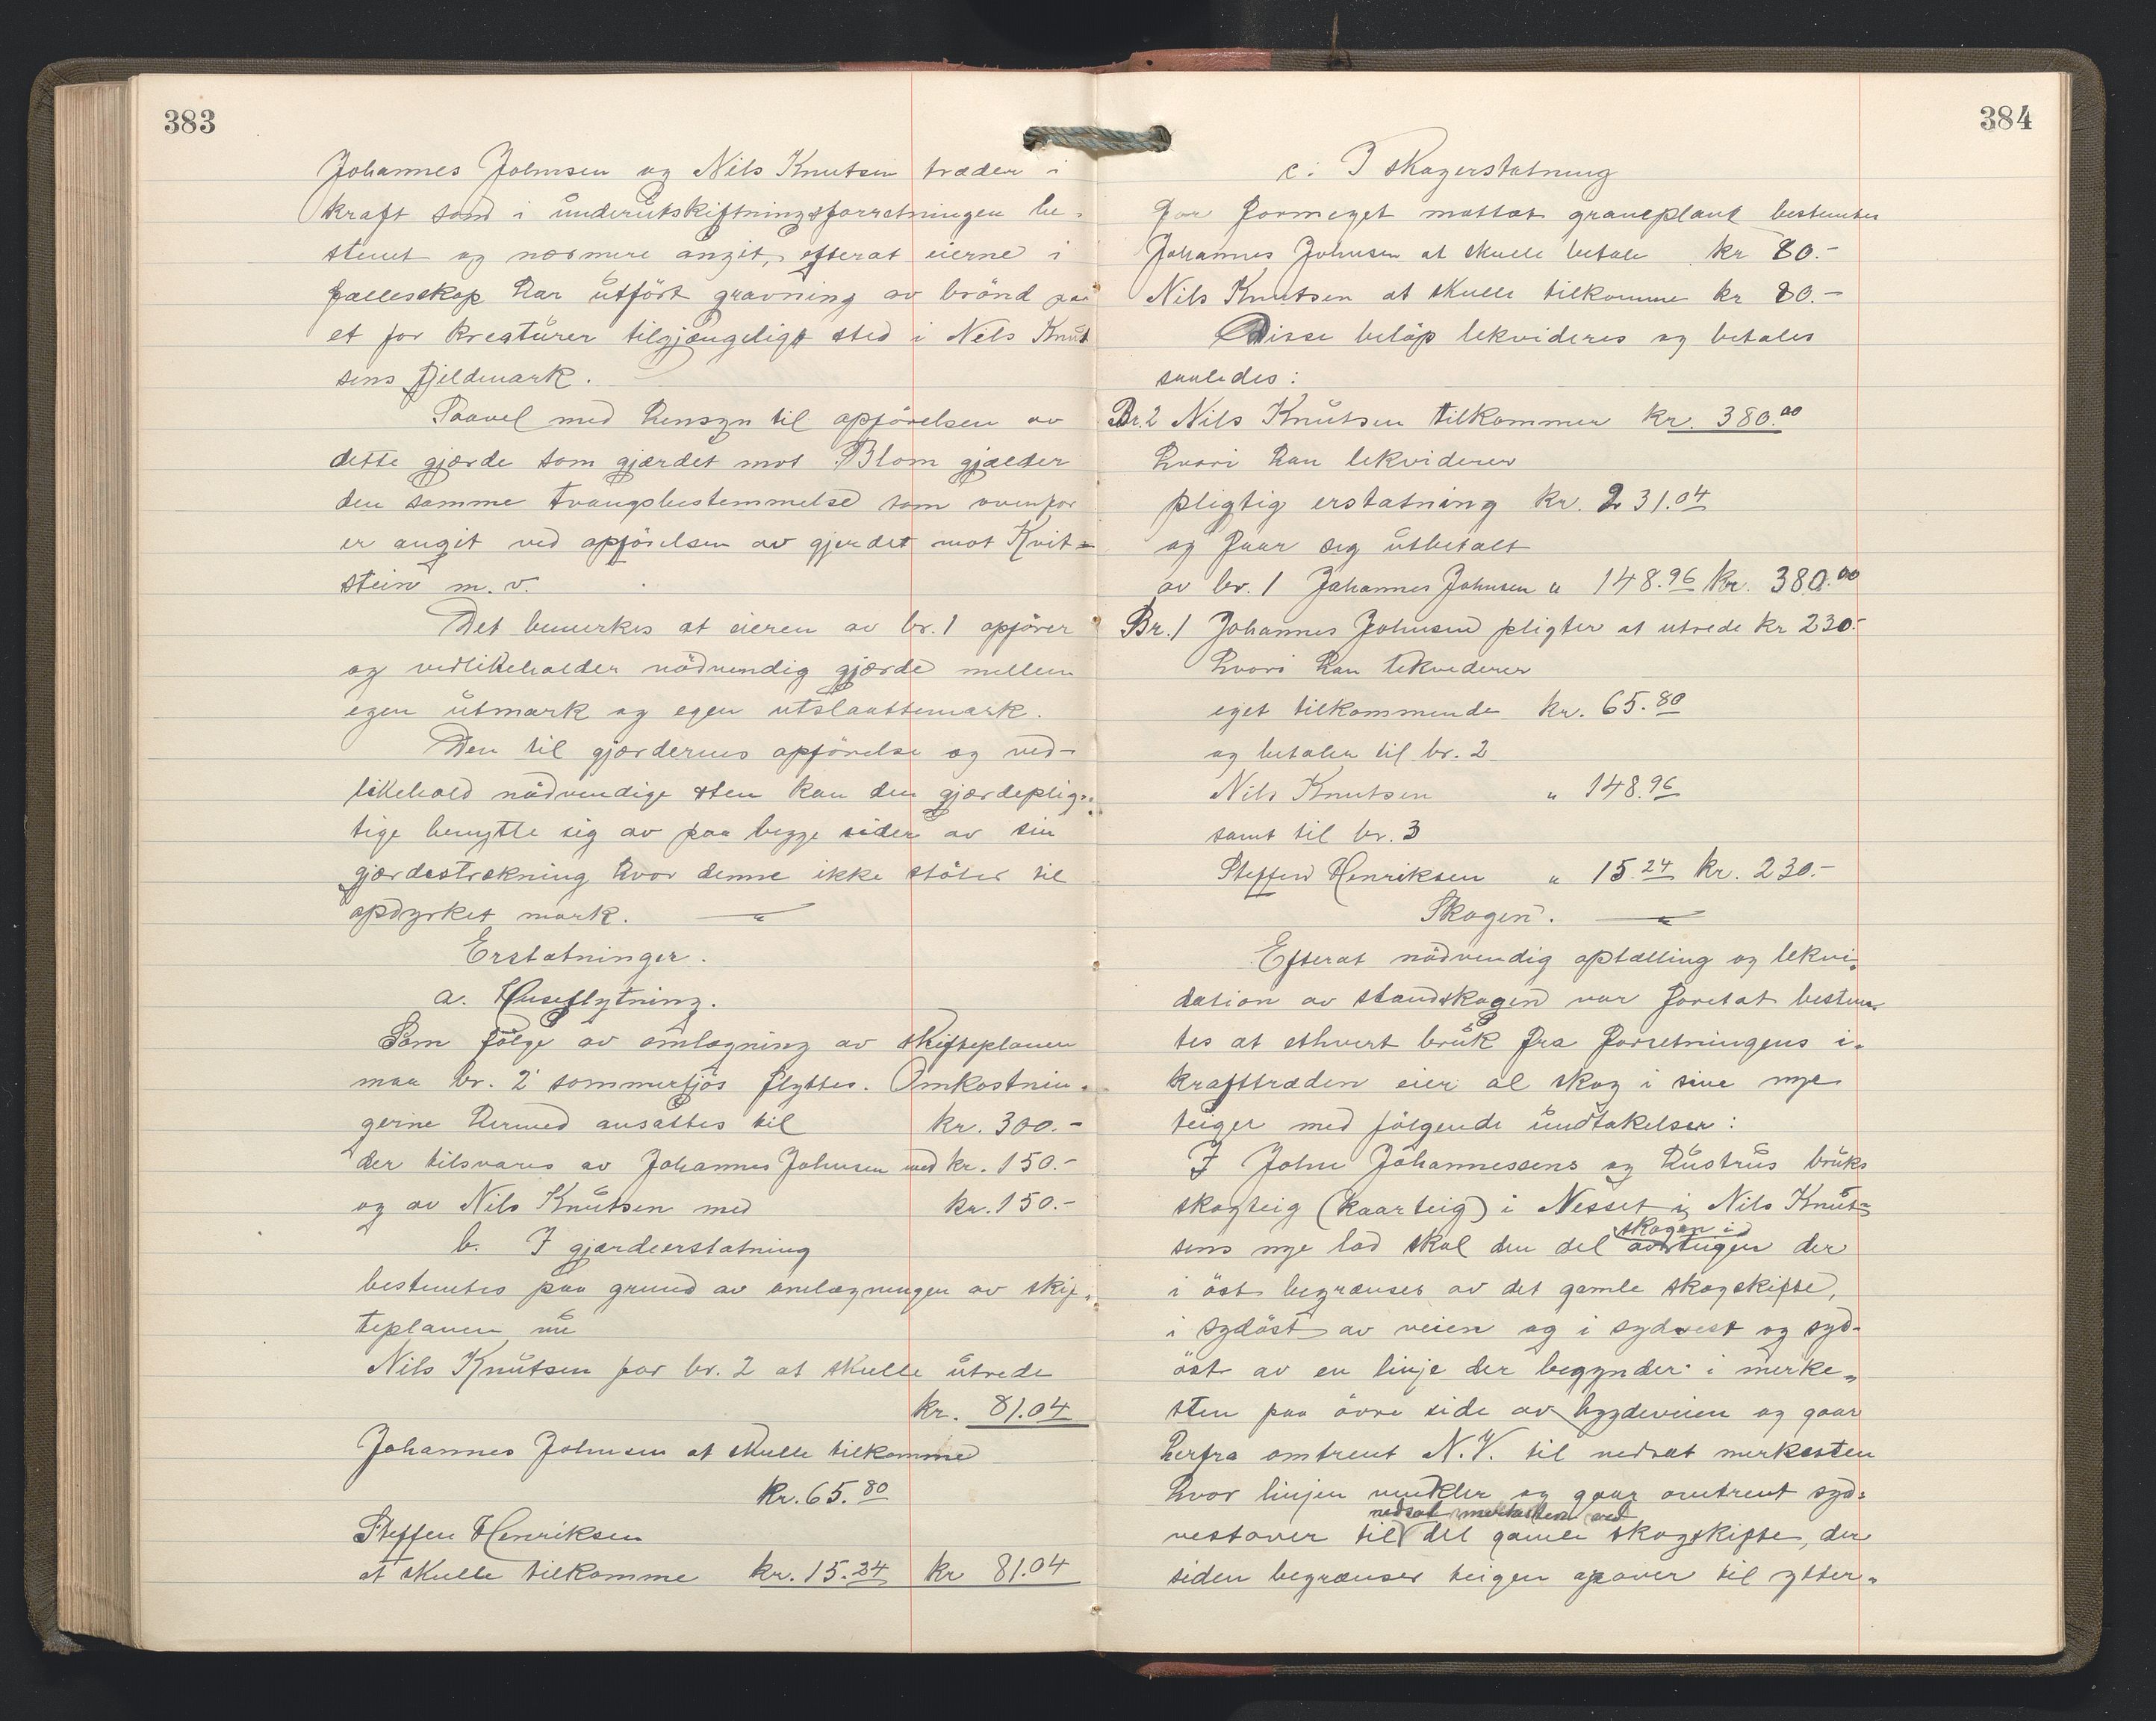 383
Johannes Johnsen og Nils Knutsen træder i
kraft som i underutskiftningsforretningen be-
stemt og nærmere angit, efterat eierne i
fællesskap har utført gravning av brönd paa
et for kreaturer tilgjængeligt sted i Nils Knut
sens fjeldmark.
Saavel med hensyn til opförelsen av
dette gjærde som gjærdet mot Blom gjælder
den samme tvangsbestemmelse som ovenfor
er angit ved opförelsen av gjerdet mot Kvit-
stein m. v.
Det bemerkes at eieren av br. 1 opförer
og vedlikeholder nödvendig gjærde mellem
egen utmark og egen utslaattemark.
Den til gjærdernes opförelse og ved-
likehold nödvendige sten kan den gjærdeplig-
tige benytte sig av paa begge sider av sin
gjærdestrekning hvor denne ikke støter til
opdyrket mark. — " —
Erstatninger.
a. Huseflytning.
Som fölge av omlægning av skifteplanen
maa br. 2 sommerfjös flyttes. Omkostnin-
gerne hermed ansattes til kr. 300.-
der tilsvares av Johannes Johnsen med kr. 150.-
og av Nils Knutsen med kr. 150.-
b. I gjærdeerstatning
bestemtes paa grund av omlægningen av skif-
teplanen nu
Nils Knutsen for br. 2 at skulle utrede
kr. 81.04
Johannes Johnsen at skulle tilkomme
kr. 65.80
Steffen Henriksen
at skulle tilkomme kr. 15.24 kr 81.04
384
c: I skogerstatning
for formeget mottat graneplank bestemtes
Johannes Johnsen at skulle betale kr 80.-
Nils Knutsen at skulle tilkomme kr 80.-
Disse belöp lekvideres og betales
saaledes:
Br. 2 Nils Knutsen tilkommer kr. 380.00
hvori han lekviderer
pligtig erstatning kr. 231.04
og faar sig utbetalt
av br. 1 Johannes Johnsen " 148.96 kr. 380.00
Br. 1 Johannes Johnsen pligter at utrede kr 230.-
hvori han lekvederer
eget tilkommende kr. 65.80
og betaler til br. 2
Nils Knutsen " 148.96
samt til br. 3
Steffen Henriksen " 15.24 kr. 230.-
Skogen. — " —
Efterat nödvendig optælling og lekvi-
dation av standskogen var foretat bestem-
tes at ethvert bruk fra forretningens i-
krafttræden eier al skog i sine nye
teiger med fölgende undtakelser:
I John Johannessens og hustrus bruks
skogteig (kaarteig) i Nesset i Nils Knut-
skogen i
sens nye lod skal den del av teigen der
i öst begrænses av det gamle skogskifte,
i sydöst av veien og i sydvest og syd-
öst av en linje der begynder i merke-
sten paa övre side av bygdeveien og gaar
herfra omtrent N.V. til nedsat merkesten
hvor linjen vinkler og gaar omtrent syd-
nedsat merkesten ved
vestover til det gamle skogskifte, der
siden begrænser teigen opover til ytter-